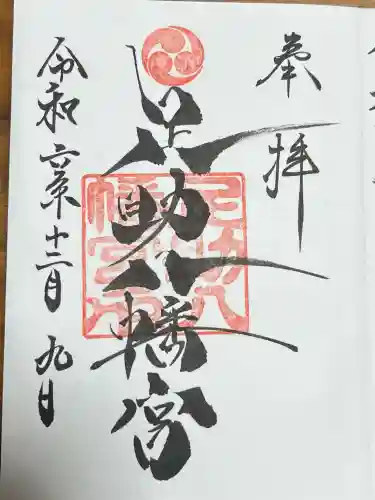 奉拝
足助八幡宮
足助八幡宮
令和六年十二月九日